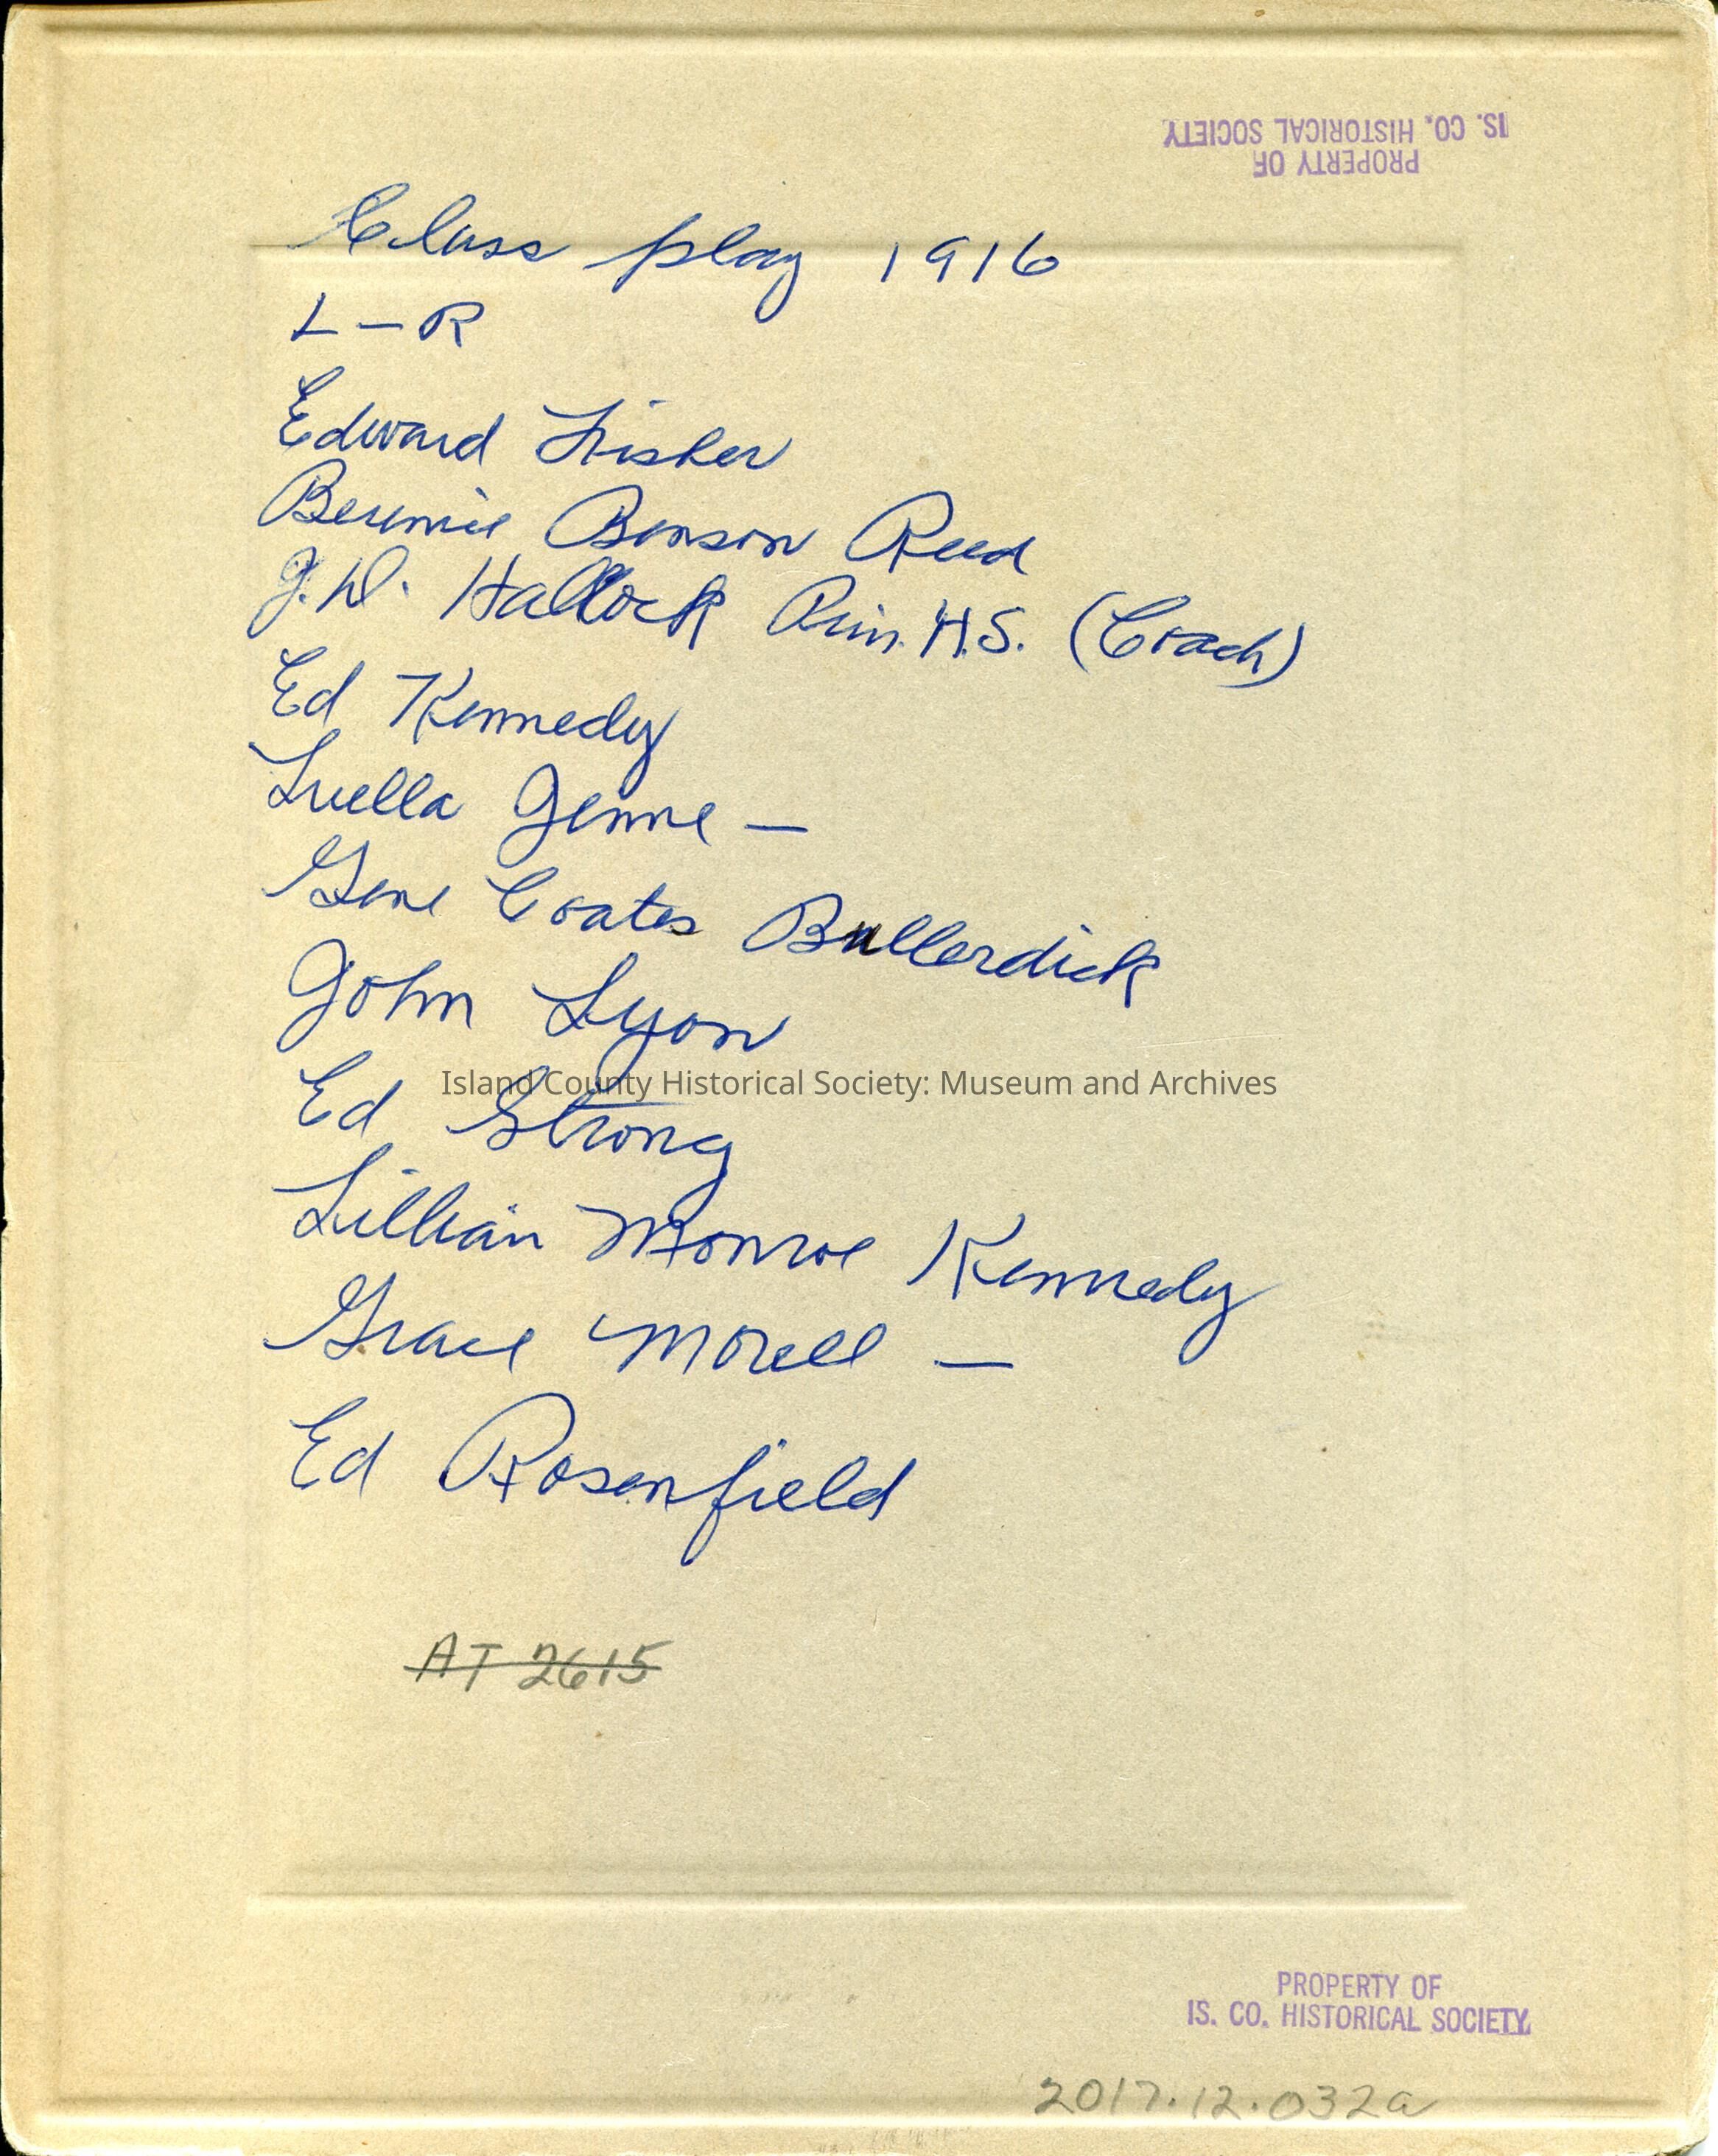 IS. CO. HISTORICAL SOCIETY
PROPERTY OF
Class play 1916
L - R
Edward Fisher
Berenice Benson Reed
J.D. Hallock Prin. H.S. (Coach)
Ed Kennedy
Luella Jenne —
Gene Coates Bullerdick
John Lyon
Island County Historical Society: Museum and Archives
Ed Strong
Lillian Monroe Kennedy
Grace Morell —
Ed Rosenfield
AT 2615
PROPERTY OF
IS. CO. HISTORICAL SOCIETY
2017.12.032a